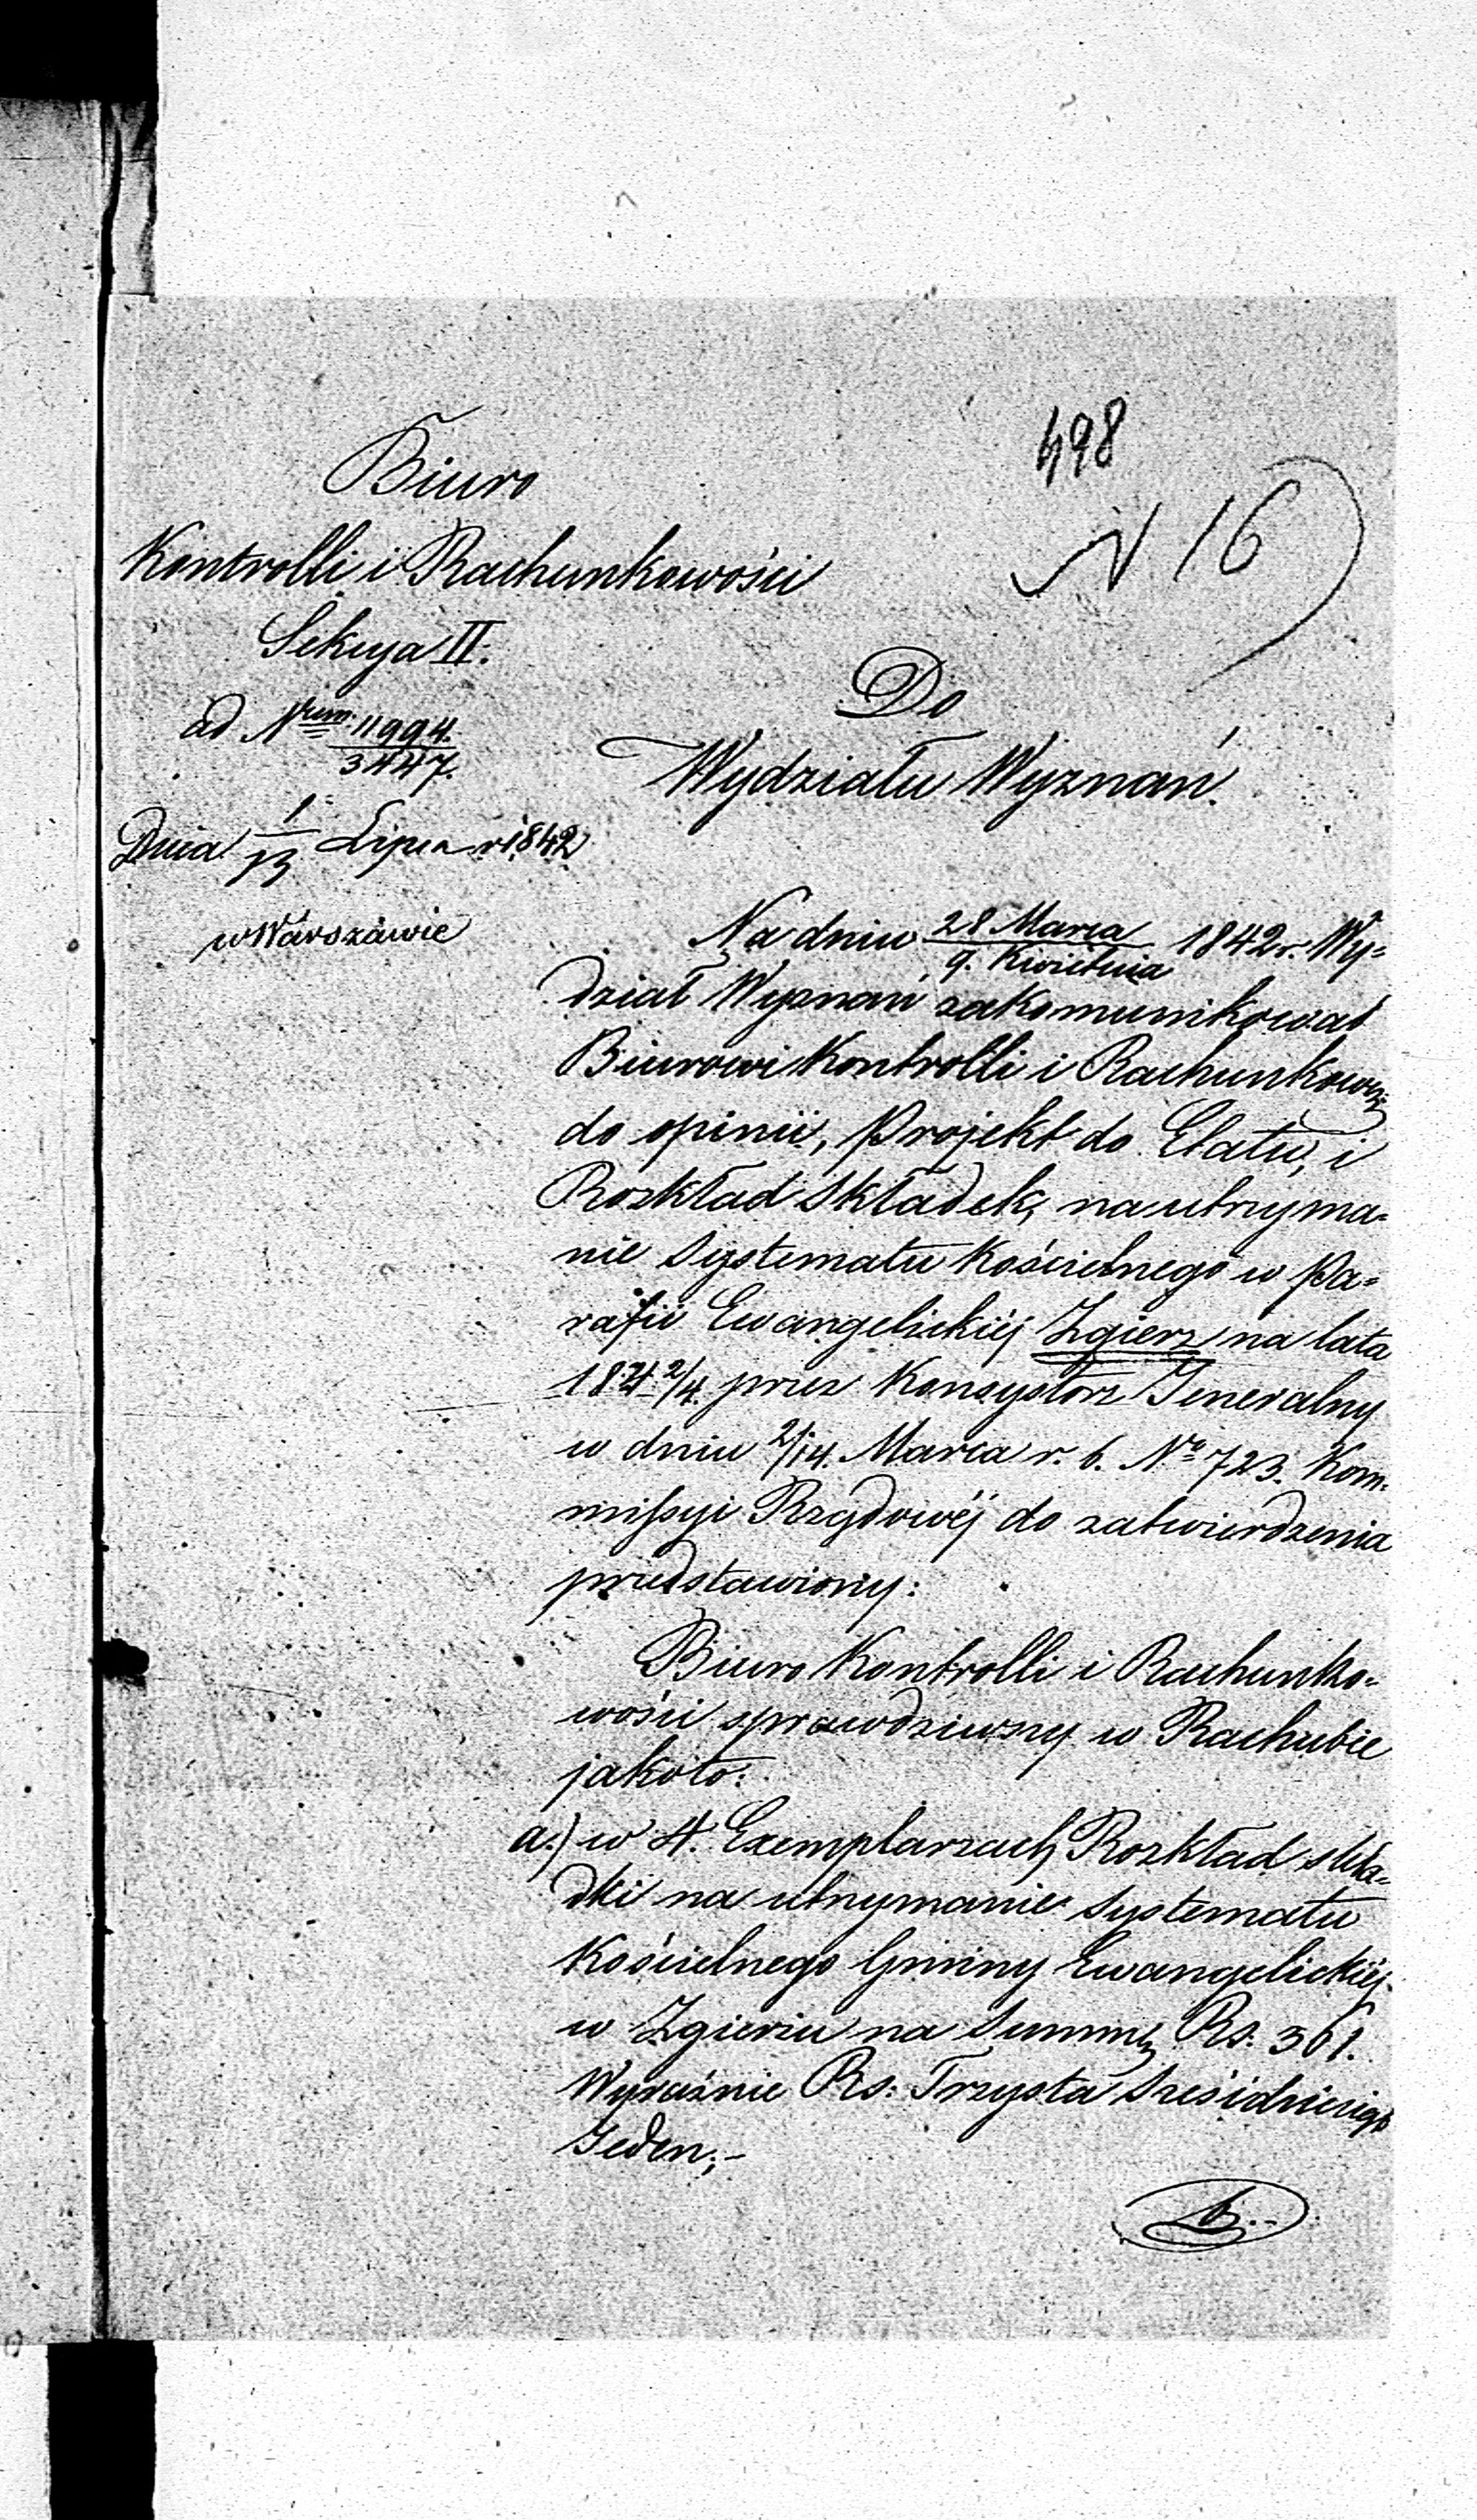 498
N 16
Biuro
Kontrolli i Rachunkowości
Sekcya II.
ad Nrum 11994.
3447.
Dnia 1/13 Lipca r 1842
w Warszawie
Do
Wydziału Wyznań.
Na dniu 28 Marca / 9. Kwietnia 1842 r. Wy=
dział Wyznań zakomunikował
Biurowi Kontrolli i Rachunkowości
do opinii, Projekt do Etatu, i
Rozkład Składek, na utrzyma=
nie Systematu Kościelnego w Pa=
rafii Ewangelickiéj Zgierz na lata
184 2/4. przez Konsystorz Jeneralny
w dniu 2/14. Marca r. b. No 723. Kom=
missyi Rządowéj do zatwierdzenia
przedstawiony:
Biuro Kontrolli i Rachunko=
wości sprawdziwszy w Rachubie
jakoto:
a.) w 4. Exemplarzach Rozkład skła=
dki na utrzymanie Systematu
Kościelnego Gminy Ewangelickiéj
w Zgierzu na Summę Rs. 361.
Wyraźnie Rs: Trzysta Sześćdziesiąt
Jeden;-